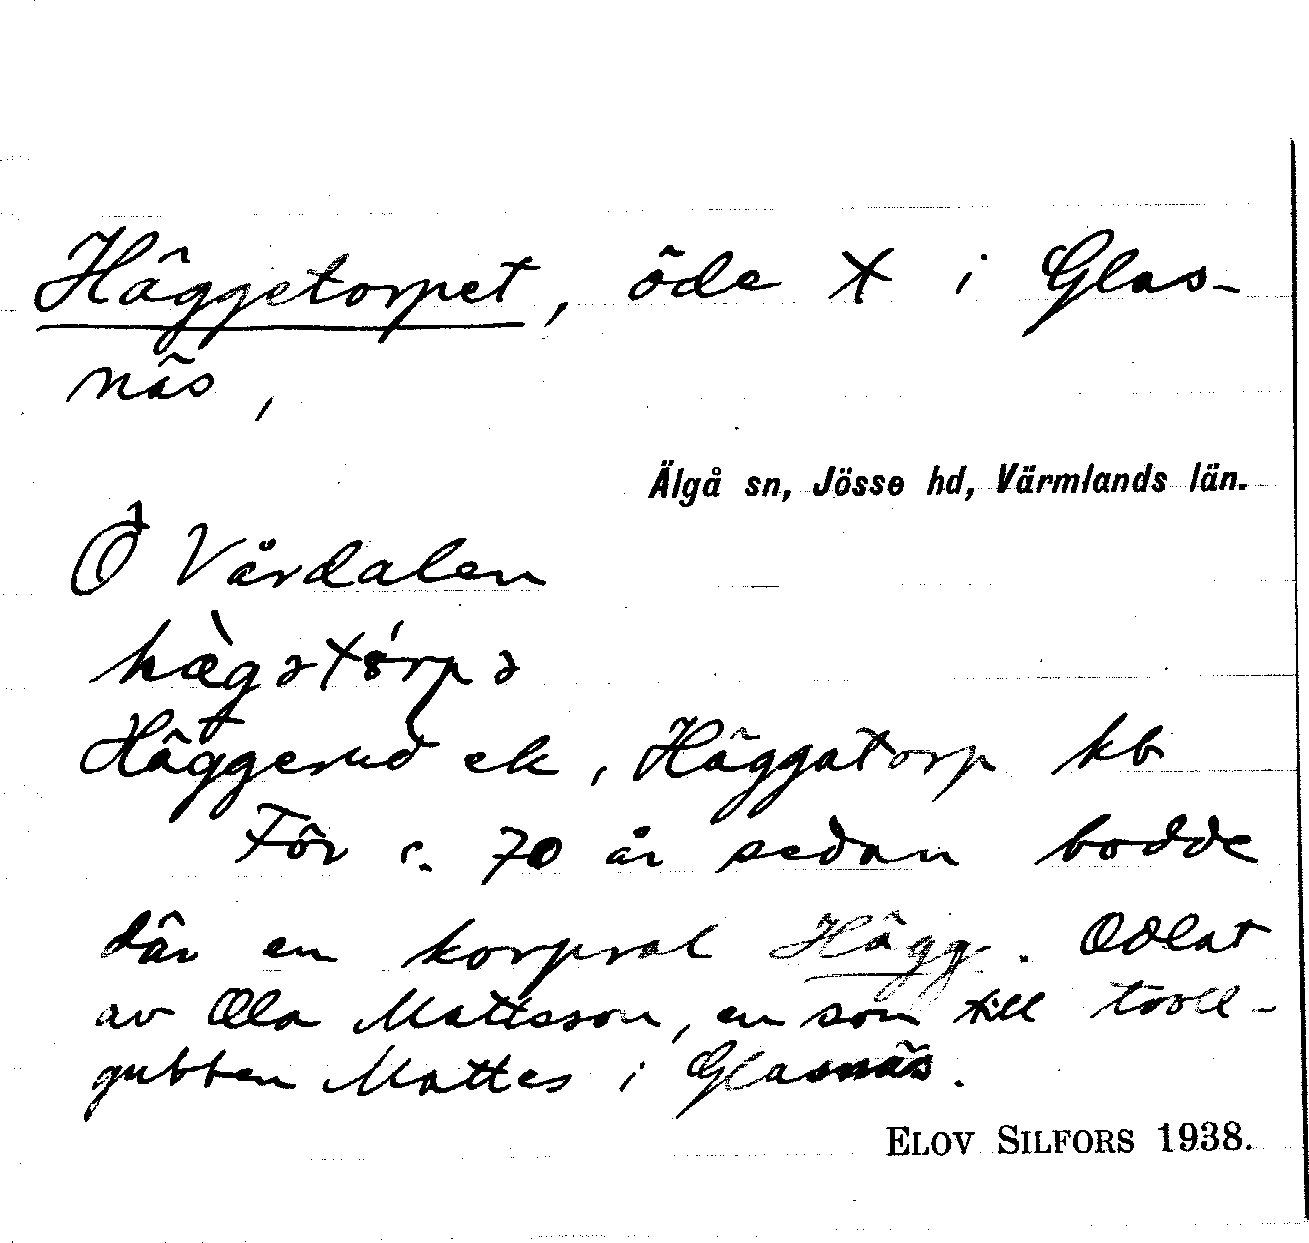 Häggetorpet, öde X i Glas-
näs,
Älgå sn, Jösse hd, Värmlands län.
Ö Vårdalen
hæ̀gətórpə
Häggerud ek, Häggatorp kb
För c. 70 år sedan bodde
där en korpral Hägg. Odlat
av Ola Mattsson, en son till troll-
gubben Mattes i Glasnäs.
ELOV SILFORS 1938.